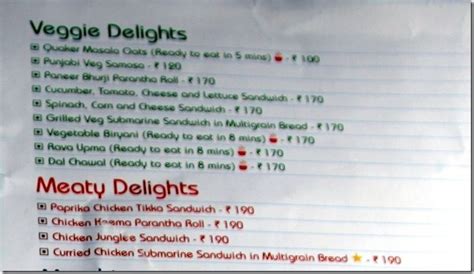 Veggie Delights
Quaker Masala Oats (Ready to eat in 5 mins) - ₹ 100
Punjabi Veg Samosa - ₹ 120
Paneer Bhurji Parantha Roll - ₹ 170
Cucumber, Tomato, Cheese and Lettuce Sandwich - ₹ 170
Spinach, Corn and Cheese Sandwich - ₹ 170
Grilled Veg Submarine Sandwich in Multigrain Bread - ₹ 170
Vegetable Biryani (Ready to eat in 8 mins) - ₹ 170
Rava Upma (Ready to eat in 8 mins) - ₹ 170
Dal Chawal (Ready to eat in 8 mins) - ₹ 170
Meaty Delights
Paprika Chicken Tikka Sandwich - ₹ 190
Chicken Keema Parantha Roll - ₹ 190
Chicken Junglee Sandwich - ₹ 190
Curried Chicken Submarine Sandwich in Multigrain Bread - ₹ 190